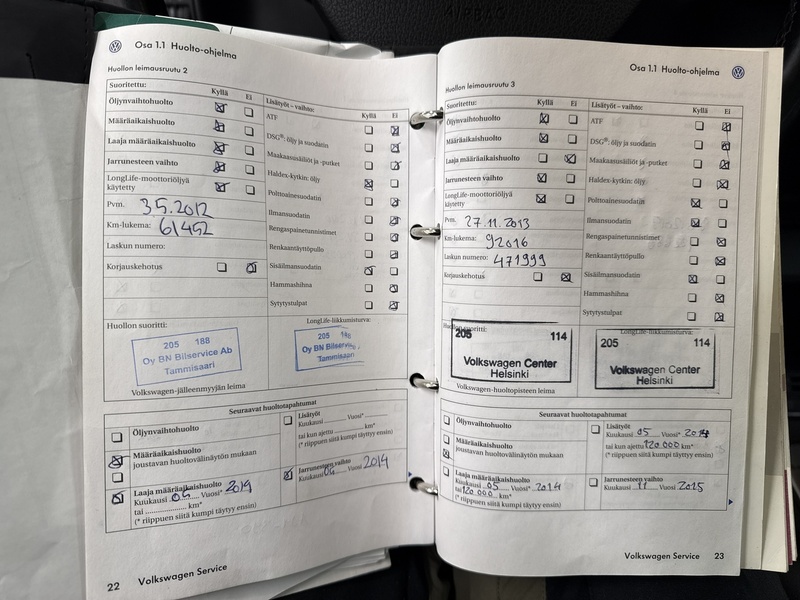 Osa 1.1 Huolto-ohjelma
Huollon leimausruutu 2
Suoritettu: Kyllä Ei
Öljynvaihtohuolto
Määräaikaishuolto
Laaja määräaikaishuolto
Jarrunesteen vaihto
LongLife-moottoriöljyä
käytetty
Pvm. 3.5.2012
Km-lukema: 61452
Laskun numero:
Korjauskehotus
Lisätyöt – vaihto: Kyllä Ei
ATF
DSG®: öljy ja suodatin
Maakaasusäiliöt ja -putket
Haldex-kytkin: öljy
Polttoainesuodatin
Ilmansuodatin
Rengaspainetunnistimet
Renkaantäyttöpullo
Sisäilmansuodatin
Hammashihna
Sytytystulpat
Huollon suoritti:
205 188
Oy BN Bilservice Ab
Tammisaari
Volkswagen-jälleenmyyjän leima
LongLife-liikkumisturva:
205
Oy BN Bilservice
Tammisaari
Seuraavat huoltotapahtumat
Öljynvaihtohuolto
Määräaikaishuolto
joustavan huoltovälinäytön mukaan
Laaja määräaikaishuolto
Kuukausi Vuosi* 2014
tai km*
(* riippuen siitä kumpi täyttyy ensin)
Lisätyöt
Kuukausi Vuosi*
tai kun ajettu km*
(* riippuen siitä kumpi täyttyy ensin)
Jarrunesteen vaihto
Kuukausi Vuosi 2014
22 Volkswagen Service
Osa 1.1 Huolto-ohjelma
Huollon leimausruutu 3
Suoritettu: Kyllä Ei
Öljynvaihtohuolto
Määräaikaishuolto
Laaja määräaikaishuolto
Jarrunesteen vaihto
LongLife-moottoriöljyä
käytetty
Pvm. 27.11.2013
Km-lukema: 92016
Laskun numero: 471999
Korjauskehotus
Lisätyöt – vaihto: Kyllä Ei
ATF
DSG®: öljy ja suodatin
Maakaasusäiliöt ja -putket
Haldex-kytkin: öljy
Polttoainesuodatin
Ilmansuodatin
Rengaspainetunnistimet
Renkaantäyttöpullo
Sisäilmansuodatin
Hammashihna
Sytytystulpat
Huollon suoritti:
205 114
Volkswagen Center
Helsinki
Volkswagen-huoltopisteen leima
LongLife-liikkumisturva:
205 114
Volkswagen Center
Helsinki
Seuraavat huoltotapahtumat
Öljynvaihtohuolto
Määräaikaishuolto
joustavan huoltovälinäytön mukaan
Laaja määräaikaishuolto
Kuukausi 05 Vuosi* 2014
tai 120 000 km*
(* riippuen siitä kumpi täyttyy ensin)
Lisätyöt
Kuukausi 05 Vuosi* 2014
tai kun ajettu 120 000 km*
(* riippuen siitä kumpi täyttyy ensin)
Jarrunesteen vaihto
Kuukausi 11 Vuosi 2015
Volkswagen Service 23